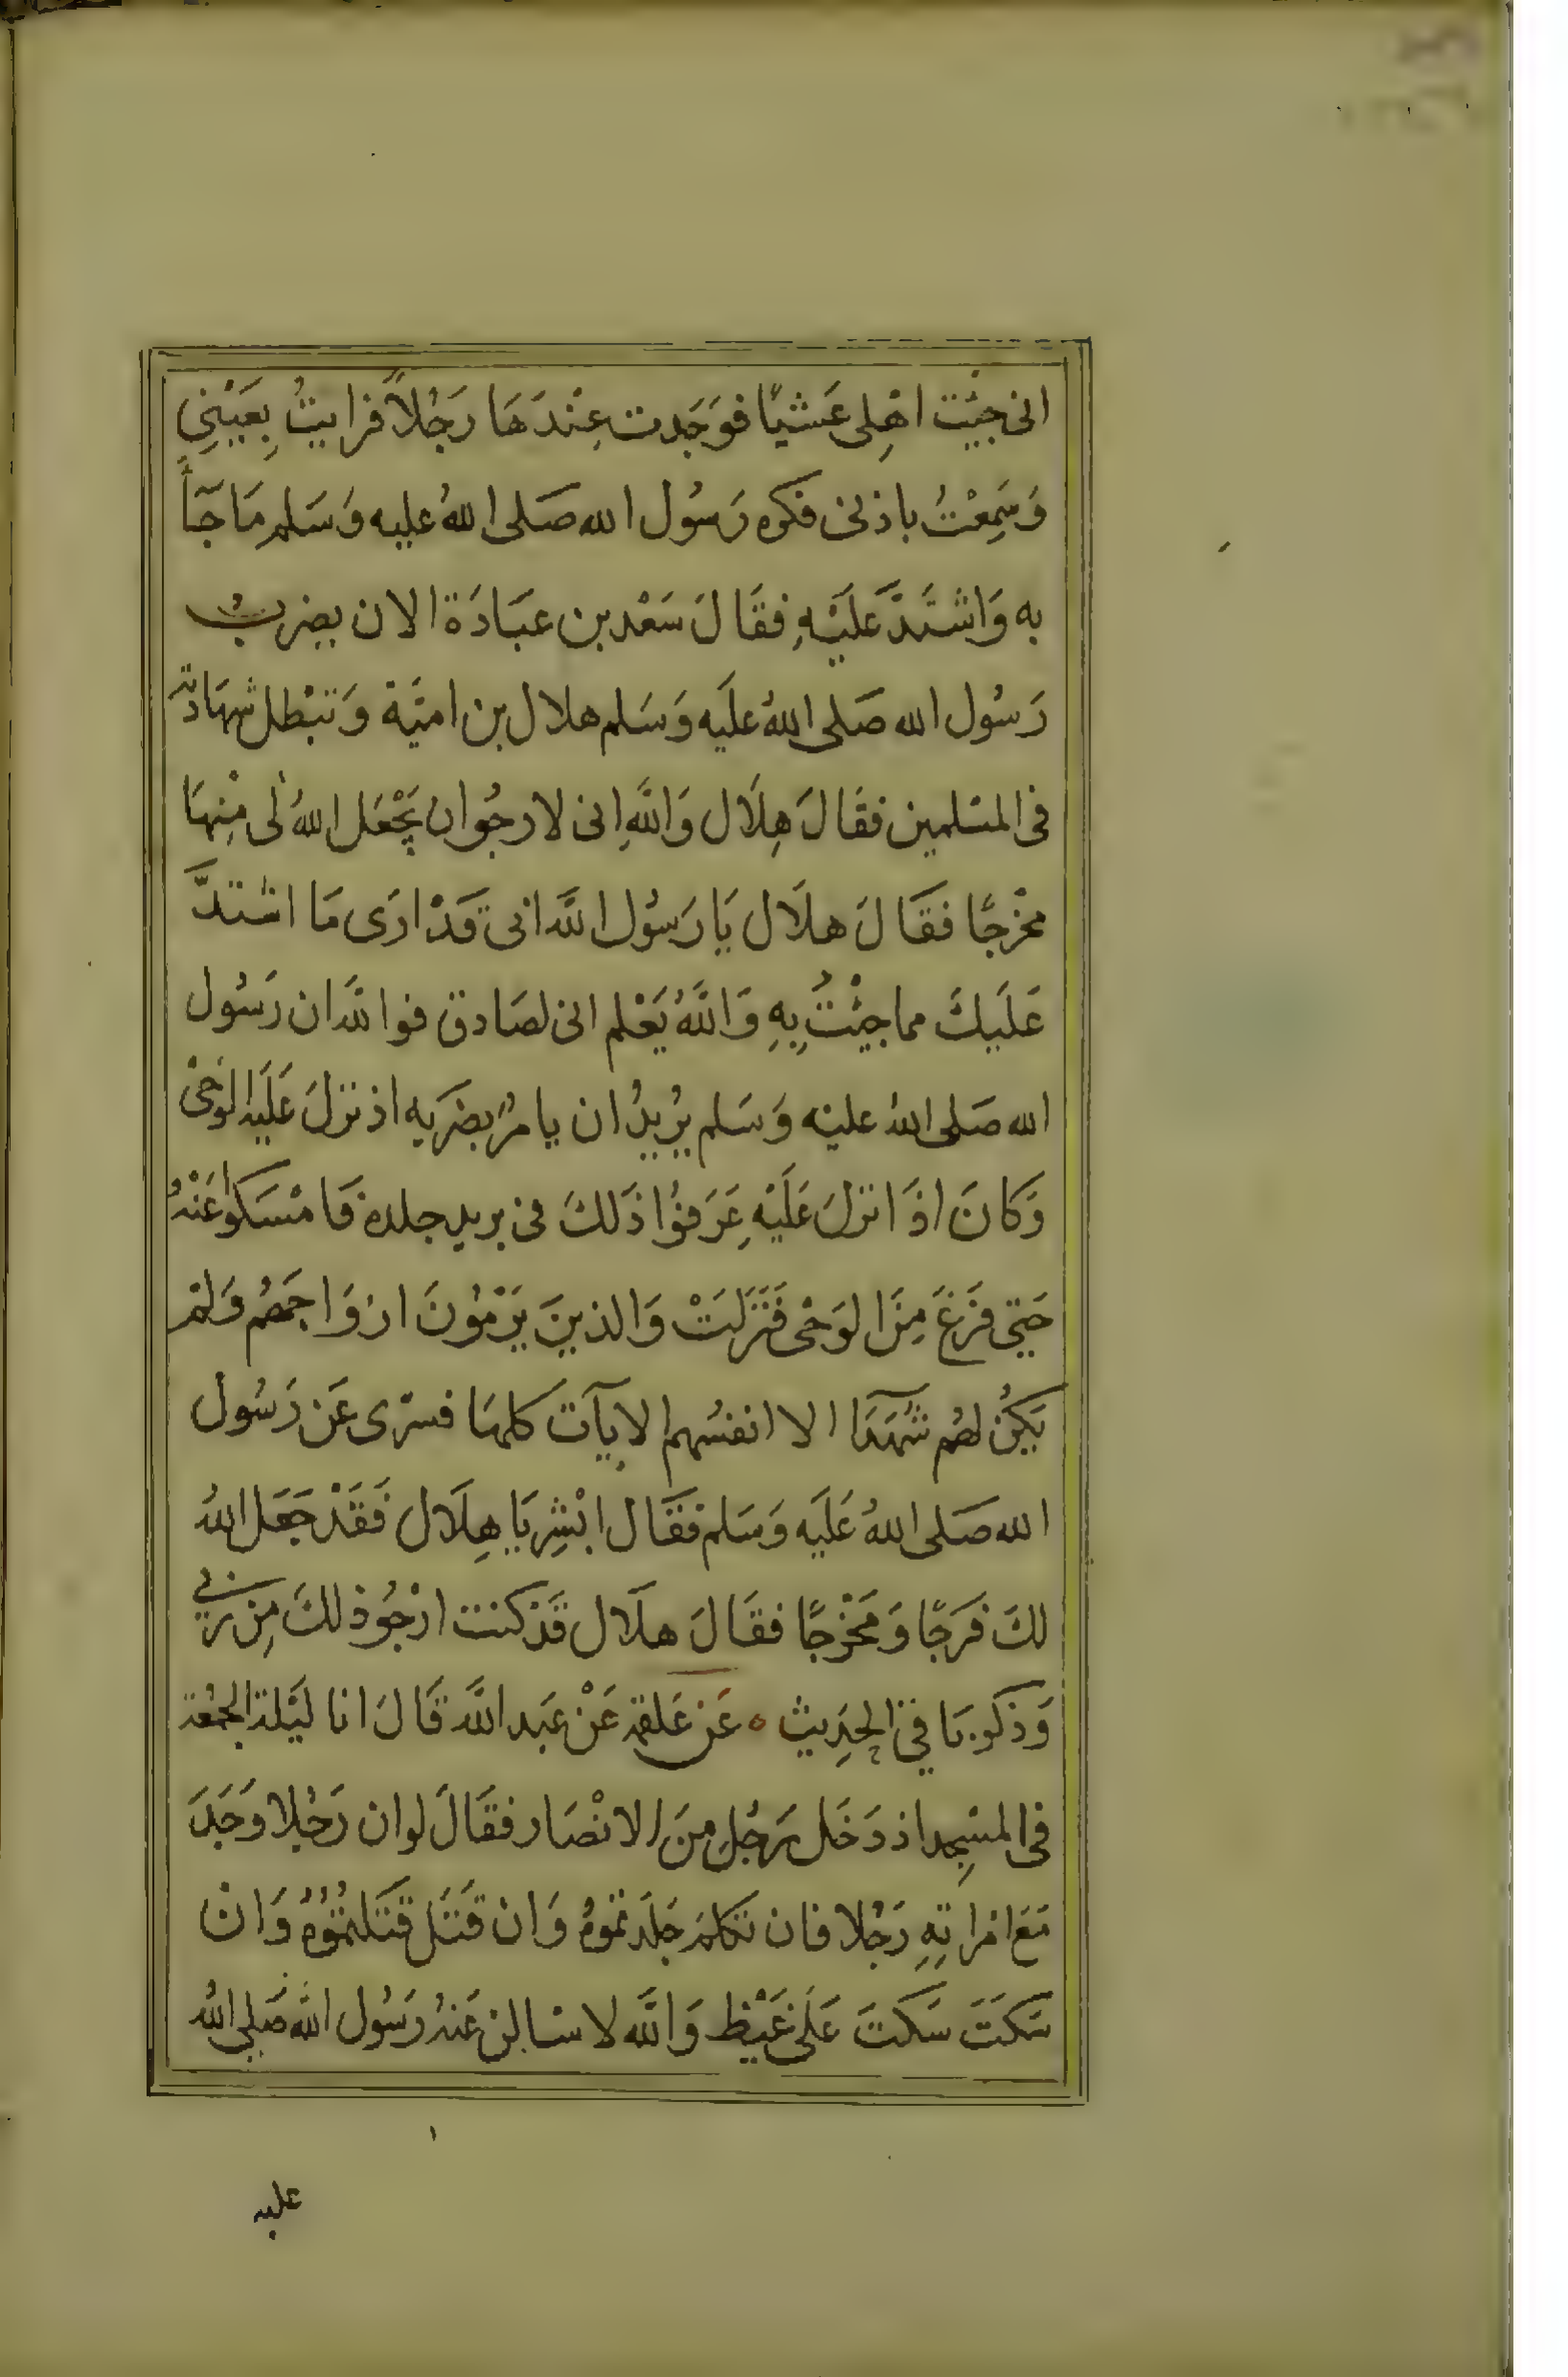 انى جيئت اهْلِى عَشيًا فوَجَدت عِنْدَهَا رَجُلاً فرايتُ بِعَيْنِى
وَسَمِعْتُ باذنى فكره رَسُول الله صَلى اللهُ عليه وَسَلم مَا جَآءً
به وَاشتَدَّ عَلَيْهِ فقَالَ سَعْد بن عبَادَة الان يضربُ
رَسُول الله صَلى اللهُ علَيه وَسَلم هلال بن اميَّة وَتبْطل شهَادته
فى المسْلمين فقَالَ هِلَال وَاللهِ انى لارجُوان يَجْعَل اللهُ لى مِنْهَا
مخْرجًا فقَالَ هلَال يَا رَسُول الله انى قَدْ ارَى مَا اشتدَّ
عَلَيكَ مما جيْتُ بِهِ وَاللهُ يَعْلم انى لصَادق فوالله ان رَسُول
الله صَلى اللهُ عليْه وَسَلم يُرِيدُ ان يامُرُ بضرَبِه اذ نزلَ عَلَيْه الوَحْى
وَكانَ اذَا نزلَ عَلَيْهِ عَرَفوُا ذَلكَ فى بريد جلده فَامْسَكوُا عَنْهُ
حَتى فرَغَ مِنَ الوَحْى فَنَزَلَتْ وَالذينَ يَرْمُونَ ازوَاجَهُم وَلمْ
يَكُنْ لهُم شُهَدَآ الا انفسُهم الايآت كلهَا فسرّى عَن رَسُول
الله صَلى اللهُ عَلَيه وَسَلم فقَال ابْشِر يَا هِلَال فَقَدْ جَعَل اللهُ
لكَ فرَجًا وَمَخْرجًا فقَالَ هلَال قَدْ كنت ارْجُو ذلكَ مِن ربى
وَذكر بَا فى الحِدِيث ه عَن عَلقمة عَنْ عَبد الله قَالَ انا ليَلة الجمُعَة
فى المسْجِد اذ دَخَل رَجُل مِنَ الانْصَار فقَالَ لوان رَجُلا وَجَدَ
مَعَ امْرَاتِهِ رَجُلا فان تكلمَ جَلَدتموهُ وَان قتَل قتَلتمُوُهُ وَانْ
سَكَتَ سَكتَ عَلَى غَيْظ وَالله لاسْالن عَنهُ رَسُول الله صَلى اللهُ
عليه